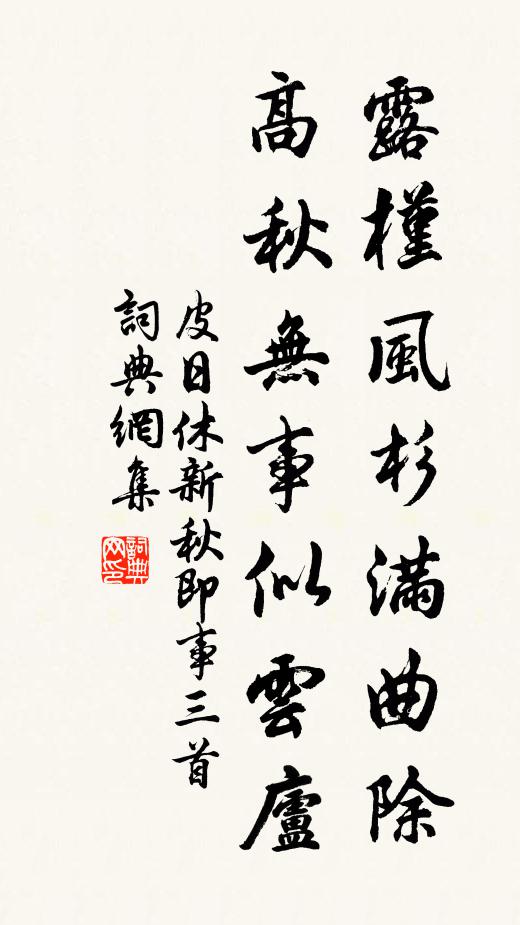 露槿風杉滿曲除
高秋無事似雲廬
皮日休新秋即事三首
詞典網集
詞典網印